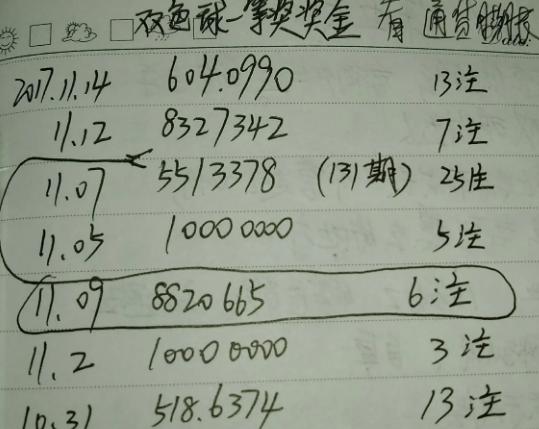 双色球一等奖奖金 看 通货膨胀
2017.11.14 604.0990 13注
11.12 8327342 7注
11.07 5513378 (131期) 25注
11.05 10000000 5注
11.09 8820665 6注
11.2 10000000 3注
10.31 518.6374 13注